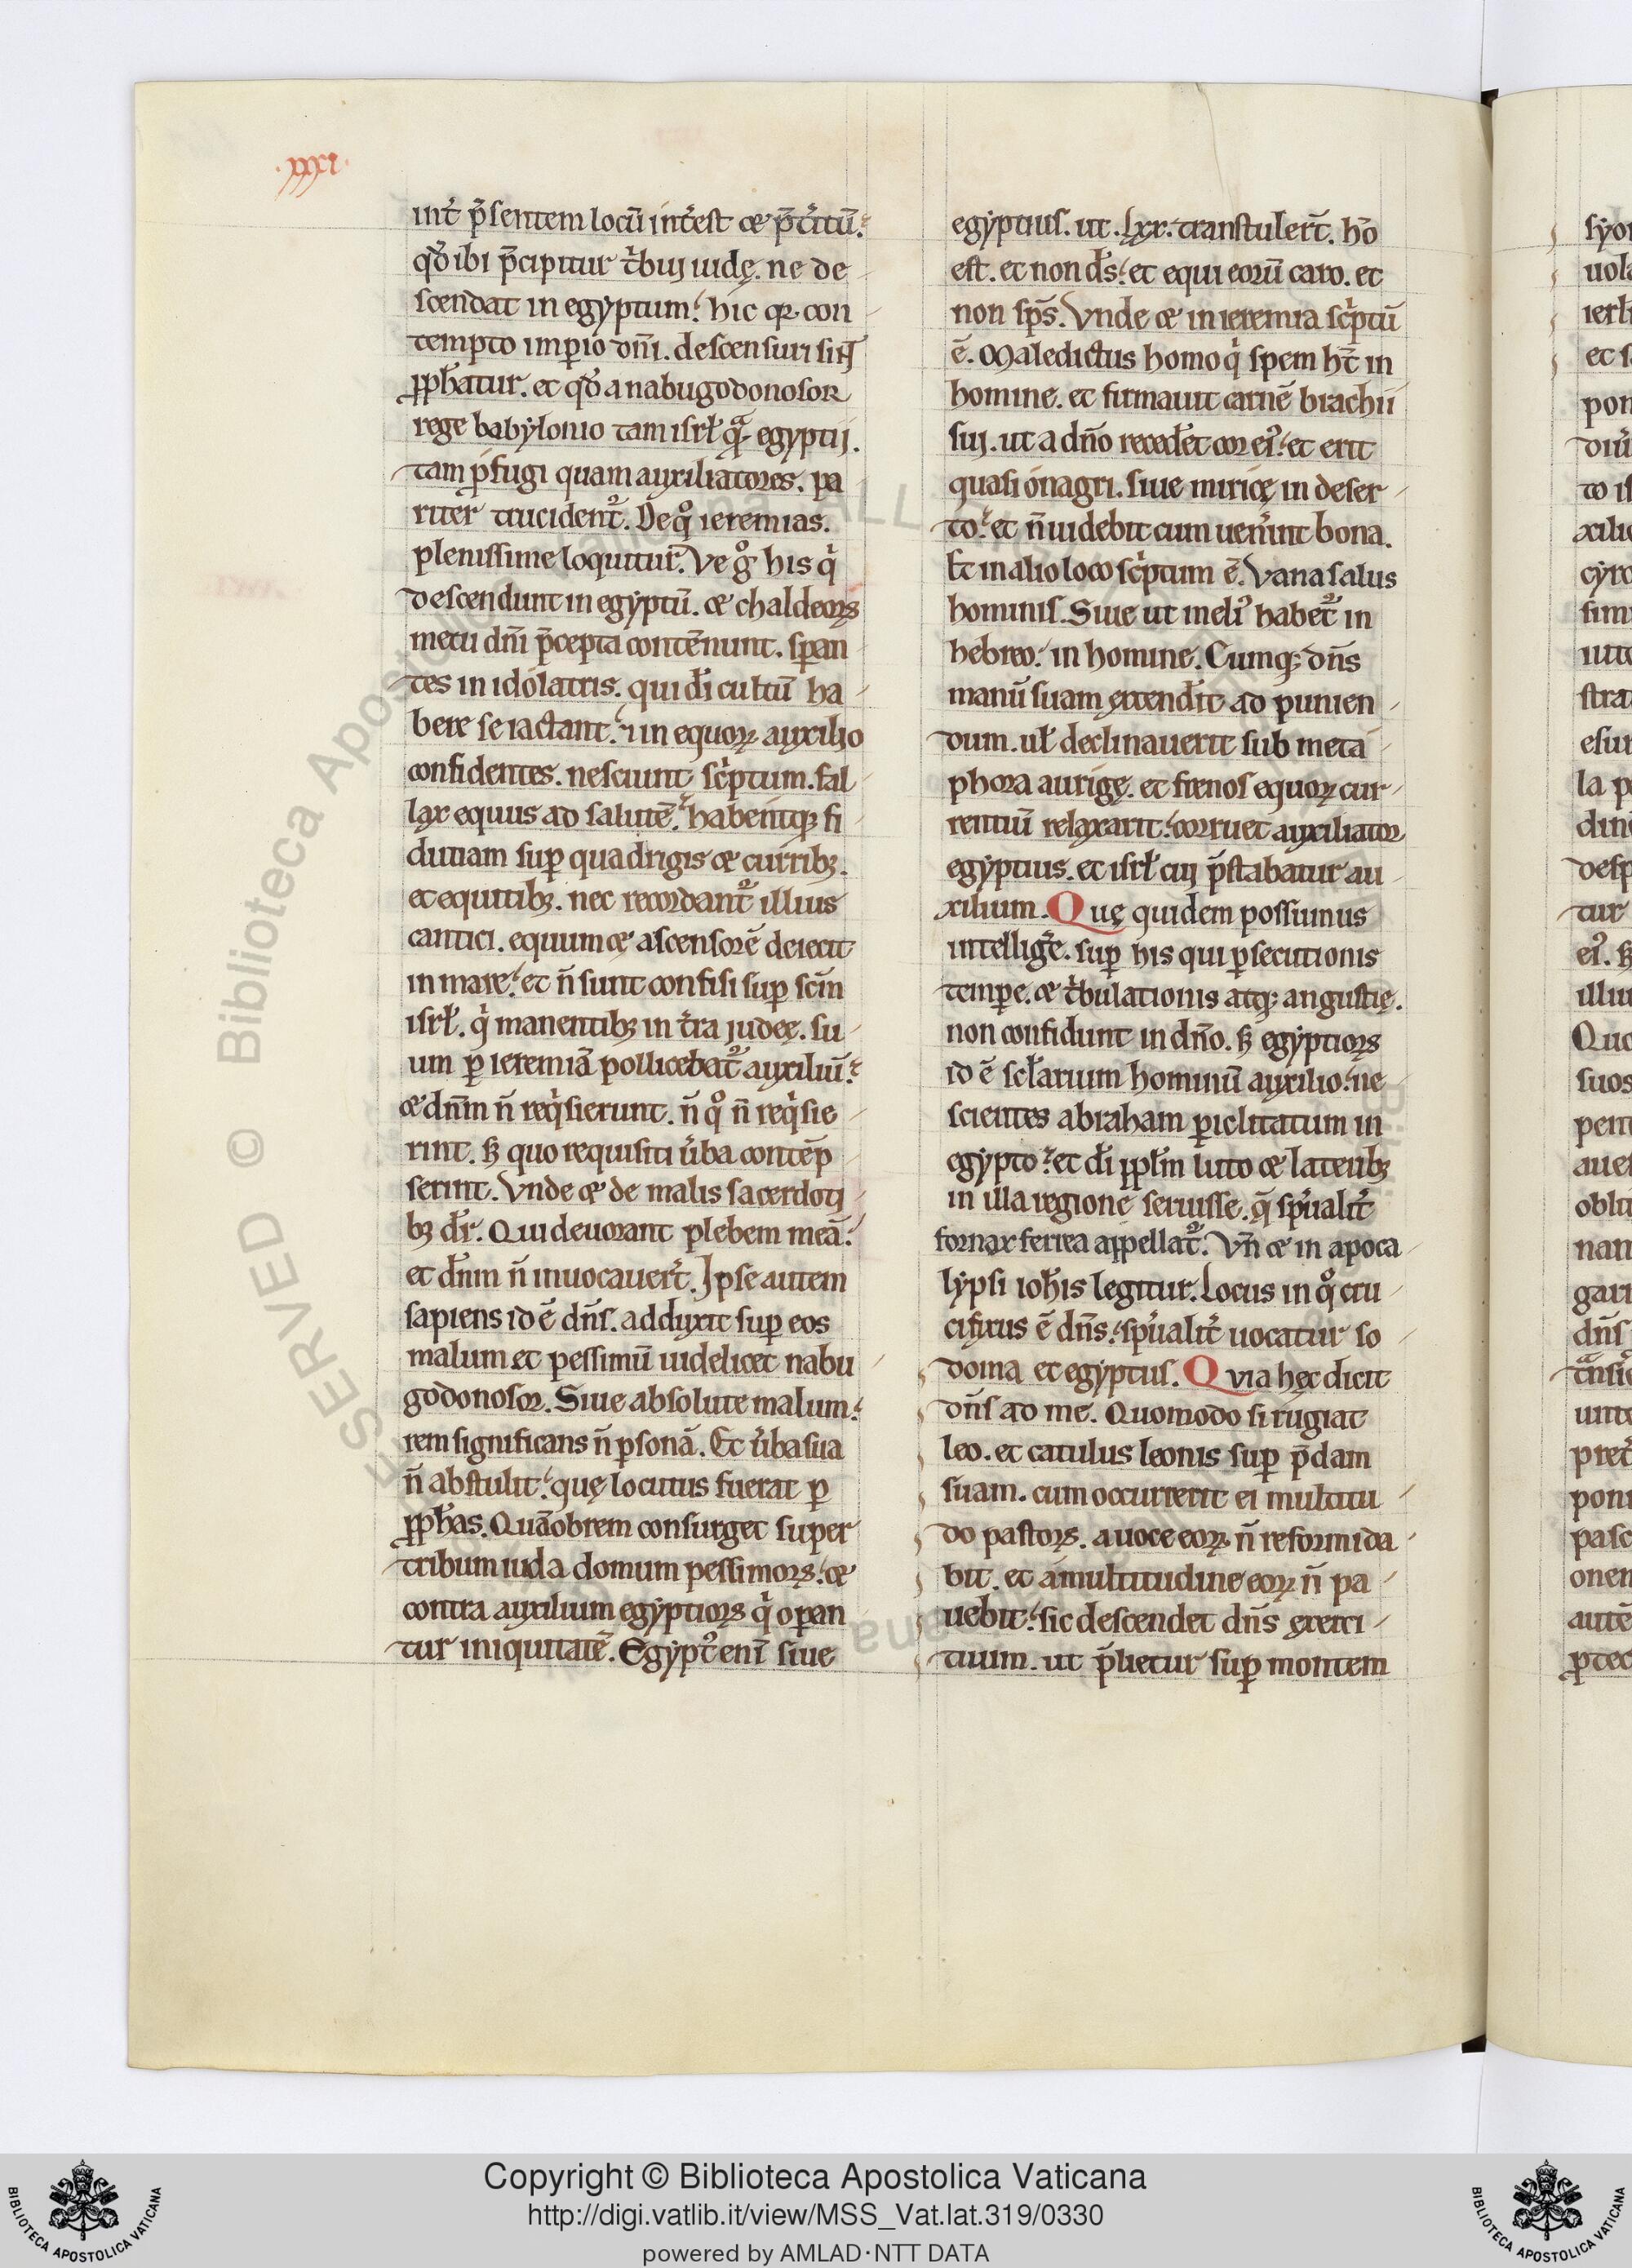 .xxxi.
int̾ p̄sentem locū int̾est ⁊ p̄t̾itū.
qđ ibi p̄cipitur t̾bui iudę. ne de
scendat in egyptum. hic qꝛ con
tempto imꝑio dn̄i. descensuri sint
ꝓph̄atur. et qđ a nabugodonosor
rege babylonio tam isrł qᵃ egyptij.
tam ꝓfugi quam auxiliatores. pa
riter trucident᷑. De qͦ ieremias.
plenissime loquitur. Ve gͦ his qⁱ
descendunt in egyptū. ⁊ chaldeoꝝ
metu dn̄i p̄cepta contēnunt. sꝑan
tes in idolatris. qui dī cultū ha
bere se iactant. ⁊ in equoꝝ auxilio
confidentes. nesciunt sc̾ptum. fal
lax equus ad salutē. habentqꝫ fi
duciam suꝑ quadrigis ⁊ curribꝫ.
et equitibꝫ. nec recordant᷑ illius
cantici. equum ⁊ ascensorē deiecit
in mare. et n̄ sunt confisi suꝑ sc̄m
isrł. qⁱ manentibꝫ in t̾ra judeę. su
um ꝑ ieremiā pollicebat᷑ auxiliū.
⁊ dn̄m n̄ reqⁱsierunt. n̄ qͦ n̄ reqⁱsie
rint. sꝫ quo requisiti ũba contēp
serint. Vnde ⁊ de malis sacerdoti
bꝫ dr̄. Qui deuorant plebem meā.
et dn̄m n̄ inuocauer̄t. Ipse autem
sapiens id ē dn̄s. adduxit suꝑ eos
malum et pessimū uidelicet nabu
godonosor. Siue absolute malum.
rem significans n̄ ꝑsonā. Et ũba sua
n̄ abstulit. quę locutus fuerat ꝑ
ꝓph̄as. Quāobrem consurget super
tribum iuda domum pessimoꝝ. ⁊
contra auxilium egyptioꝝ qⁱ oꝑan
tur iniquitatē. Egypt᷒ enī siue
egyptius. ut .lxx. transtuler̄t. hō
est. et non ds̄. et equi eorū caro. et
non sp̄s. Vnde ⁊ in ieremia sc̾ptū
ē. Maledictus homo qⁱ spem ht̄ in
homine. et firmauit carnē brachii
sui. ut a dn̄o recedet cor ei᷒. et erit
quasi onagri. siue miricę in deser
to. et n̄ uidebit cum uen̾int bona.
Et in alio loco sc̾ptum ē. Vana salus
hominis. Siue ut meli᷒ habet᷑ in
hebreo. in homine. Cumqꝫ dn̄s
manū suam extend̾it ad punien
dum. uł declinauerit sub meta
phora aurigę. et frenos equoꝝ cur
rentiū relaxarit. corruet auxiliator
egyptius. et isrł cui p̄stabatur au
xilium. Quę quidem possumus
intellig̾e. suꝑ his qui ꝑsecutionis
temꝑe. ⁊ t̾bulationis atqꝫ angustię.
non confidunt in dn̄o. sꝫ egyptioꝝ
id ē scłarium hominū auxilio. ne
scientes abraham ꝑiclitatum in
egypto. et dī ppłm luto ⁊ lateribꝫ
in illa regione seruisse. q̄ sp̾ualit̾
fornax ferrea appellat᷑. Vn̄ ⁊ in apoca
lypsi ioh̄is legitur. Locus in qͦ cru
cifixus ē dn̄s. sp̾ualit̾ uocatur so
doma et egyptus. Quia hęc dicit
dn̄s ad me. Quomodo si rugiat
leo. et catulus leonis suꝑ p̄dam
suam. cum occurrerit ei multitu
do pastoꝝ. a uoce eoꝝ n̄ reformida
bit. et a multitudine eoꝝ n̄ pa
uebit. sic descendet dn̄s exerci
tuum. ut p̄lietur suꝑ montem
Copyright © Biblioteca Apostolica Vaticana
http://digi.vatlib.it/view/MSS_Vat.lat.319/0330
powered by AMLAD·NTT DATA
BIBLIOTECA APOSTOLICA VATICANA
BIBLIOTECA APOSTOLICA VATICANA